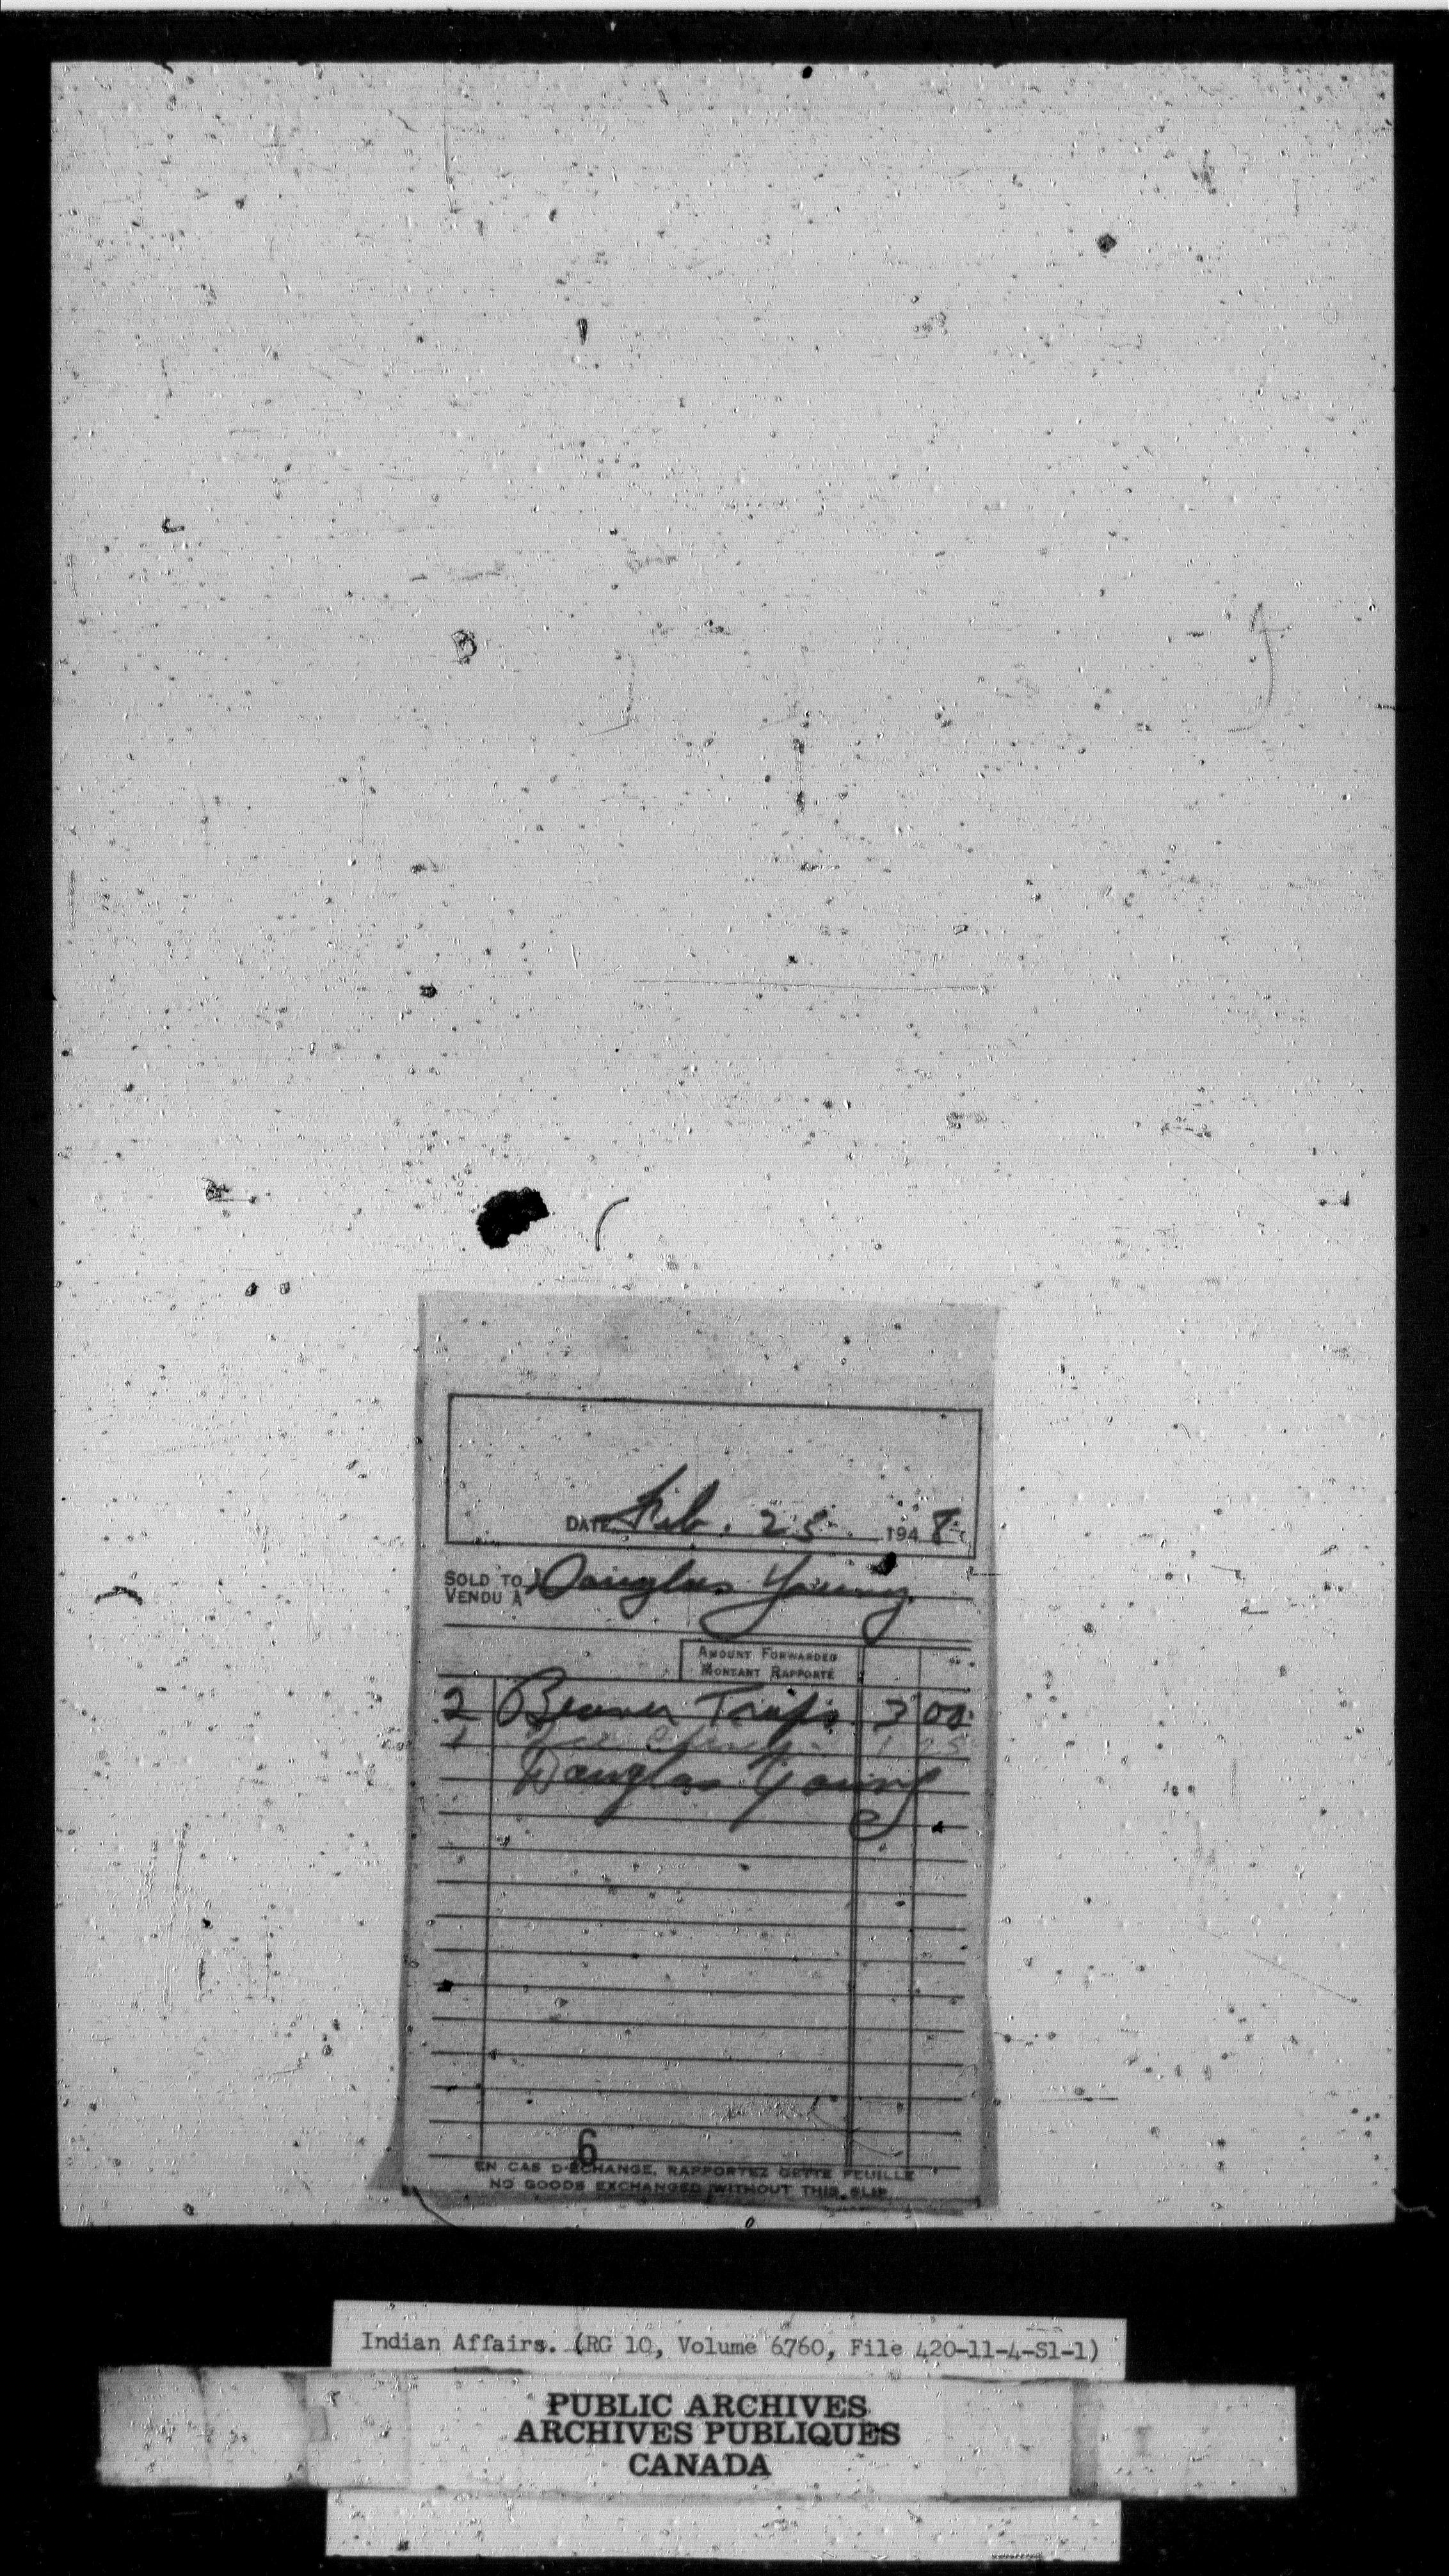 DATE Feb. 25 1948
SOLD TO Douglas Young
VENDU À
AMOUNT FORWARDED
MONTANT RAPPORTÉ
2 Beaver Traps 3 00
1 Ice Chisel 1 25
Douglas Young
6
EN CAS D'ÉCHANGE, RAPPORTEZ CETTE FEUILLE
NO GOODS EXCHANGED WITHOUT THIS SLIP
Indian Affairs. (RG 10, Volume 6760, File 420-11-4-S1-1)
PUBLIC ARCHIVES
ARCHIVES PUBLIQUES
CANADA